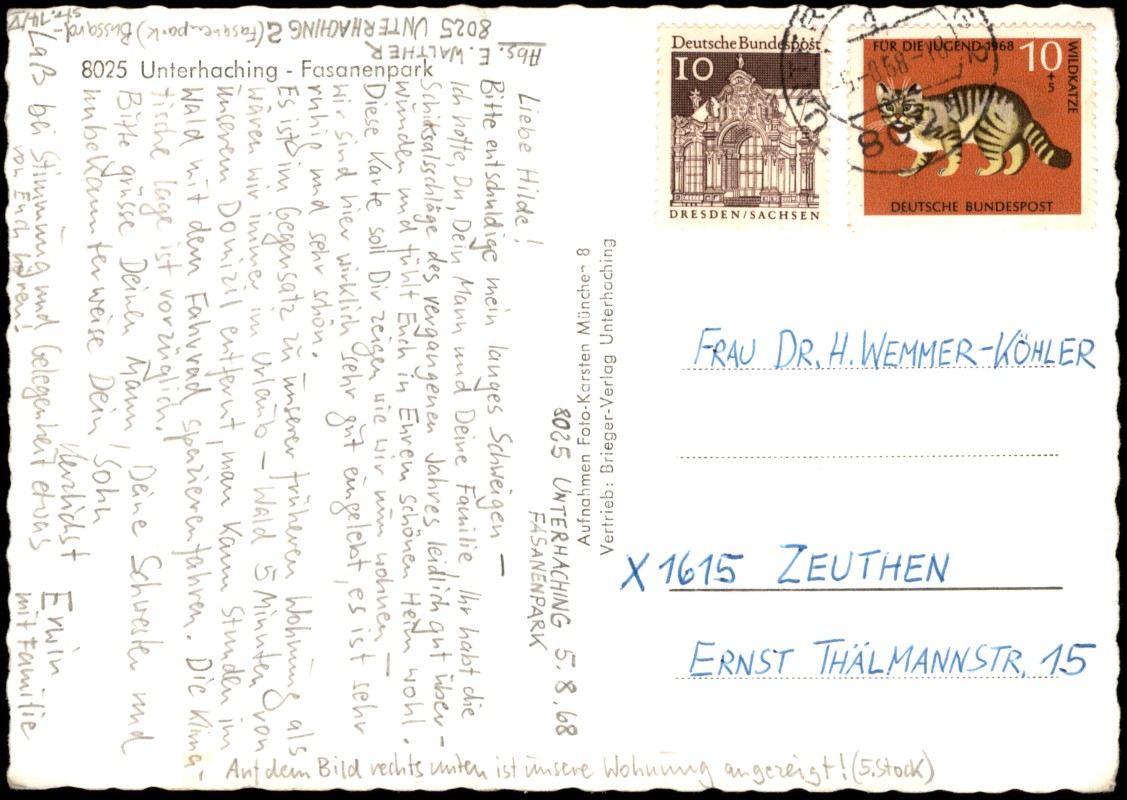 Abs. E. WALTHER
8025 UNTERHACHING 2 (Fasanenpark) Bussard-
str. 14/IV
8025 Unterhaching - Fasanenpark
8025 UNTERHACHING 5.8.68
FASANENPARK
Liebe Hilde!
Bitte entschuldige mein langes Schweigen –
Ich hoffe, Du, Dein Mann und Deine Familie, Ihr habt die
Schiksalsschläge des vergangenen Jahres leidlich gut über-
wunden und fühlt Euch in Eurem schönen Heim wohl.
Diese Karte soll Dir zeigen, wie wir nun wohnen –
wir sind hier wirklich sehr gut eingelebt, es ist sehr
ruhig und sehr schön.
Es ist im Gegensatz zu unserer früheren Wohnung als
wären wir immer im Urlaub – Wald 5 Minuten von
unserem Domizil entfernt, man kann Stunden im
Wald mit dem Fahrrad spazierenfahren. Die klima-
tische Lage ist vorzüglich.
Bitte grüsse Deinen Mann, Deine Schwester und
unbekannterweise Dein Sohn
Herzlichst Erwin
mit Familie
Laß bei Stimmung und Gelegenheit etwas
von Euch hören!
Auf dem Bild rechts unten ist unsere Wohnung angezeigt! (5. Stock)
Aufnahmen Foto-Karsten München 8
Vertrieb: Brieger-Verlag Unterhaching
Deutsche Bundespost
10
DRESDEN/SACHSEN
FÜR DIE JUGEND 1968
10
+
5
WILDKATZE
DEUTSCHE BUNDESPOST
FRAU DR. H. WEMMER-KÖHLER
X 1615 ZEUTHEN
ERNST THÄLMANNSTR. 15